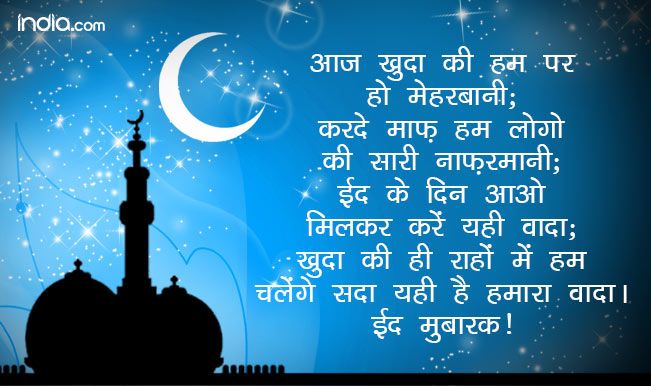 india.com
आज खुदा की हम पर
हो मेहरबानी;
करदे माफ़ हम लोगो
की सारी नाफ़रमानी;
ईद के दिन आओ
मिलकर करें यही वादा;
खुदा की ही राहों में हम
चलेंगे सदा यही है हमारा वादा।
ईद मुबारक!